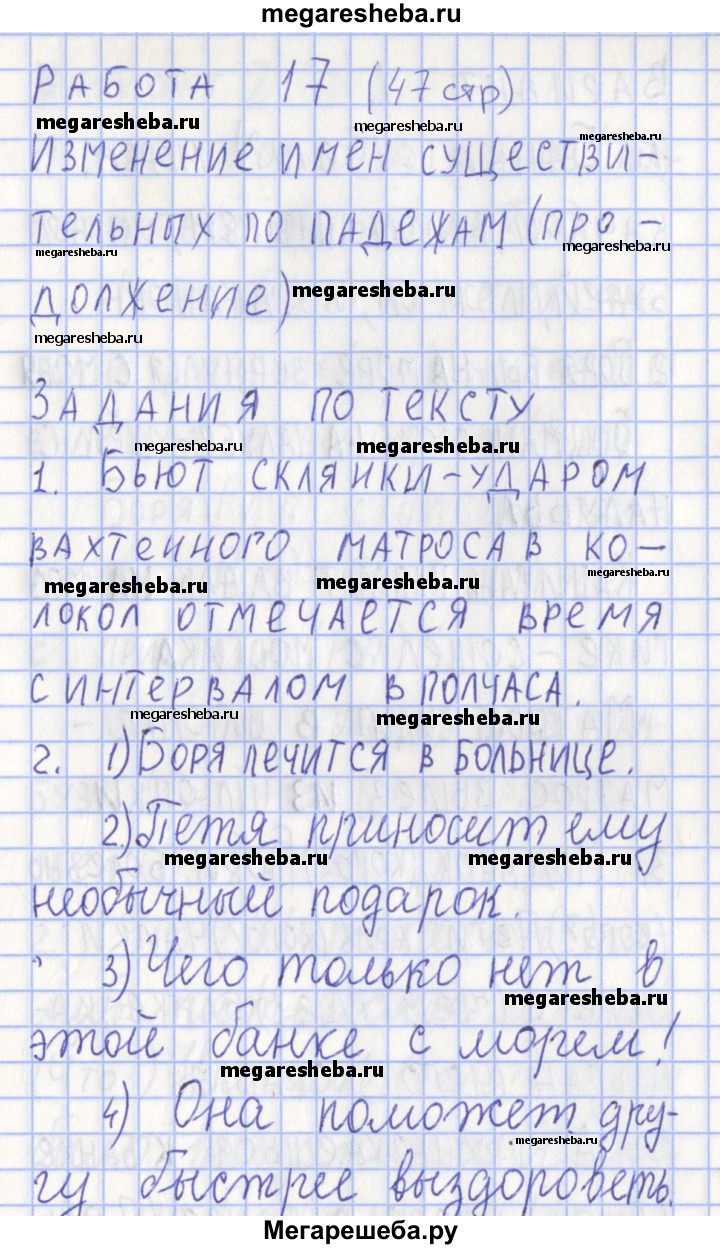 megaresheba.ru
РАБОТА 17 (47 стр)
megaresheba.ru
megaresheba.ru
megaresheba.ru
ИЗМЕНЕНИЕ ИМЕН СУЩЕСТВИ-
ТЕЛЬНЫХ ПО ПАДЕЖАМ (ПРО-
megaresheba.ru
megaresheba.ru
ДОЛЖЕНИЕ)
megaresheba.ru
megaresheba.ru
ЗАДАНИЯ ПО ТЕКСТУ
megaresheba.ru
megaresheba.ru
1. БЬЮТ СКЛЯНКИ-УДАРОМ
ВАХТЕННОГО МАТРОСА В КО-
megaresheba.ru
megaresheba.ru
megaresheba.ru
ЛОКОЛ ОТМЕЧАЕТСЯ ВРЕМЯ
С ИНТЕРВАЛОМ В ПОЛЧАСА.
megaresheba.ru
megaresheba.ru
2. 1) БОРЯ ЛЕЧИТСЯ В БОЛЬНИЦЕ.
2) Петя приносит ему
megaresheba.ru
megaresheba.ru
необычный подарок.
3) Чего только нет в
megaresheba.ru
этой банке с морем!
megaresheba.ru
4) Она поможет дру-
megaresheba.ru
гу быстрее выздороветь.
Мегарешеба.ру